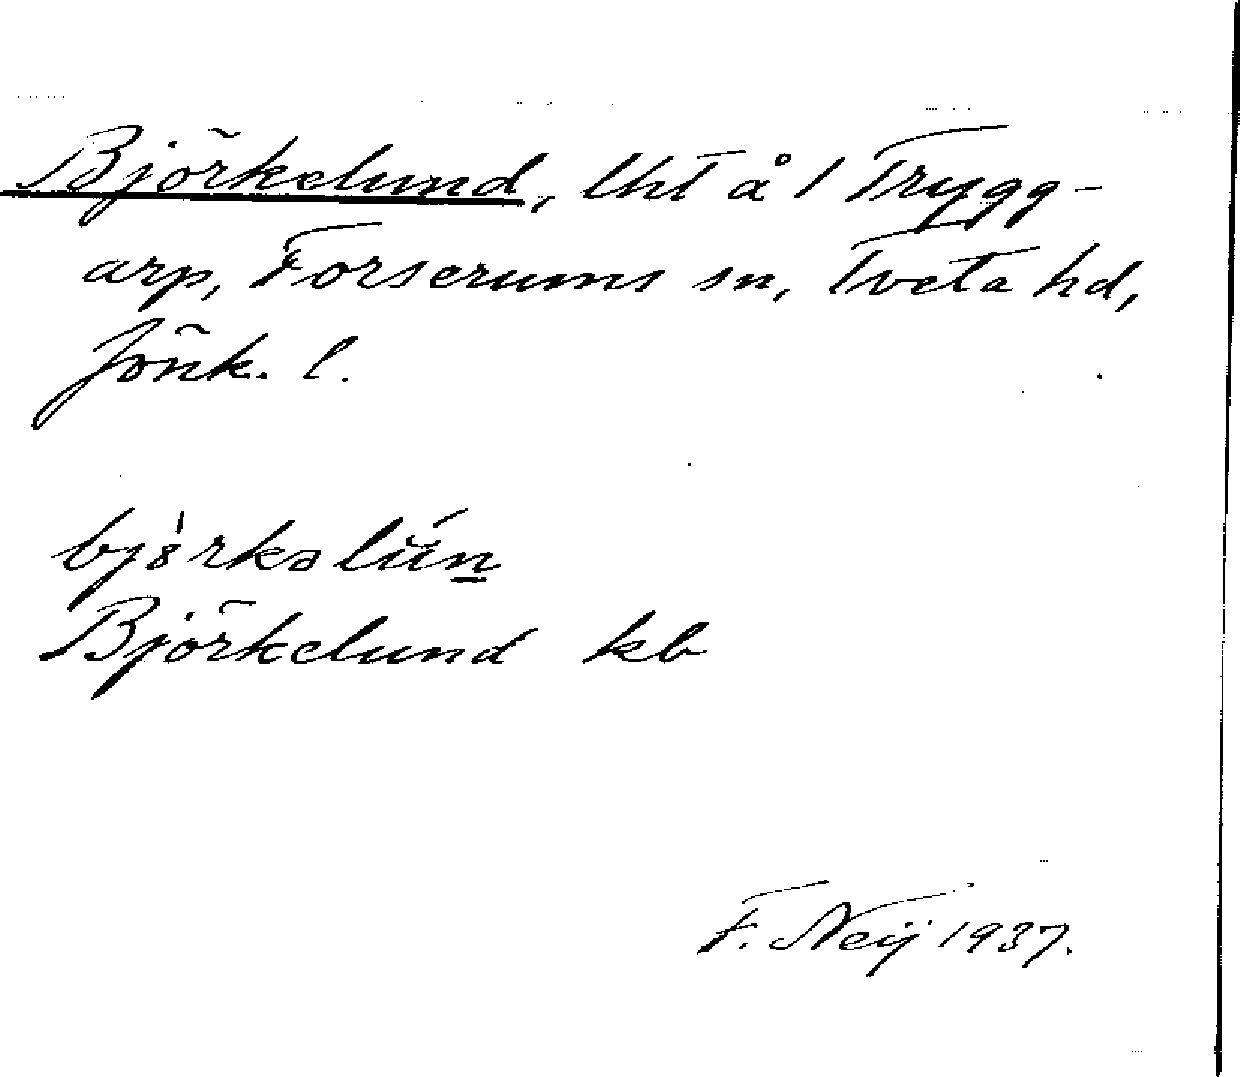 Björkelund, lht å 1 Trygg-
arp, Forserums sn, Tveta hd,
Jönk. l.
Björkelund kb
F. Neij 1937.